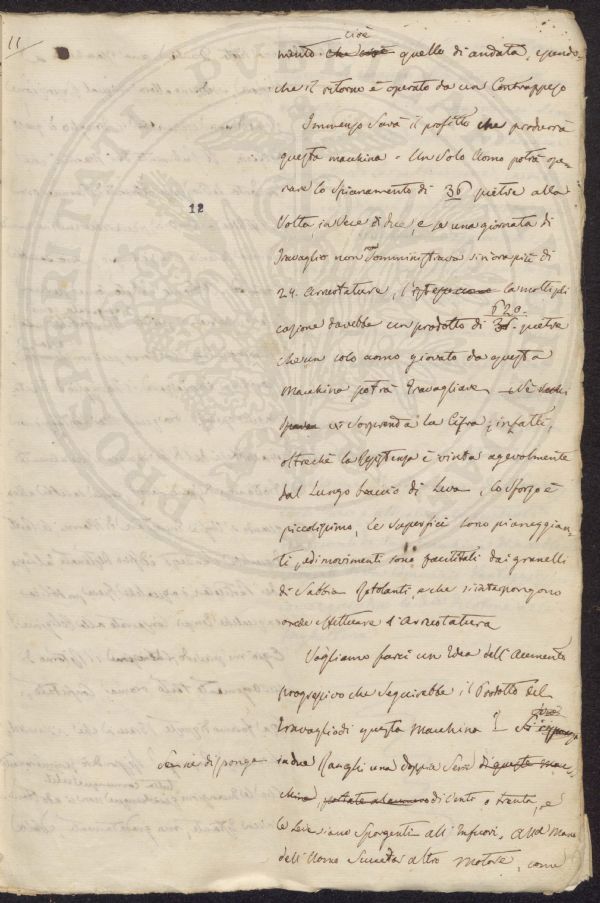 11
cioè
mento che cioè quello di andata, quando-
che il ritorno è operato da un Contrappeso
Immenso Sarà il profitto che produrrà
questa macchina - Un Solo Uomo potrà ope-
rare lo Spianamento di 36 pietre alla
12
Volta in Vece di due, e se una giornata di
travaglio non Somministrava sin'ora più di
24. Arruotature, la moltipli
620.
cazione darebbe un prodotto di 36. pietre
che un solo uomo giovato da questa
Macchina potrà travagliare Nè
vi Sorprenda la Cifra; infatti,
oltrechè la Resistenza è vinta agevolmente
dal Lungo braccio di Leva, lo Sforzo è
piccolissimo, le Superfici sono pianeggian-
ti, ed i movimenti sono facilitati dai granelli
di Sabbia Rotolanti, e che s'interpongono
onde effettuare l'Arruotatura
Vogliamo farci un Idea dell'Aumento
progressivo che Seguirebbe il Prodotto del
travaglio di questa Macchina? Si
disponga in due Ranghi una doppia Serie di queste mac-
chine, di Cento o trenta, e
le Leve siano Sporgenti all'Infuori, Alla Mano
dell'Uomo altro Motore, come